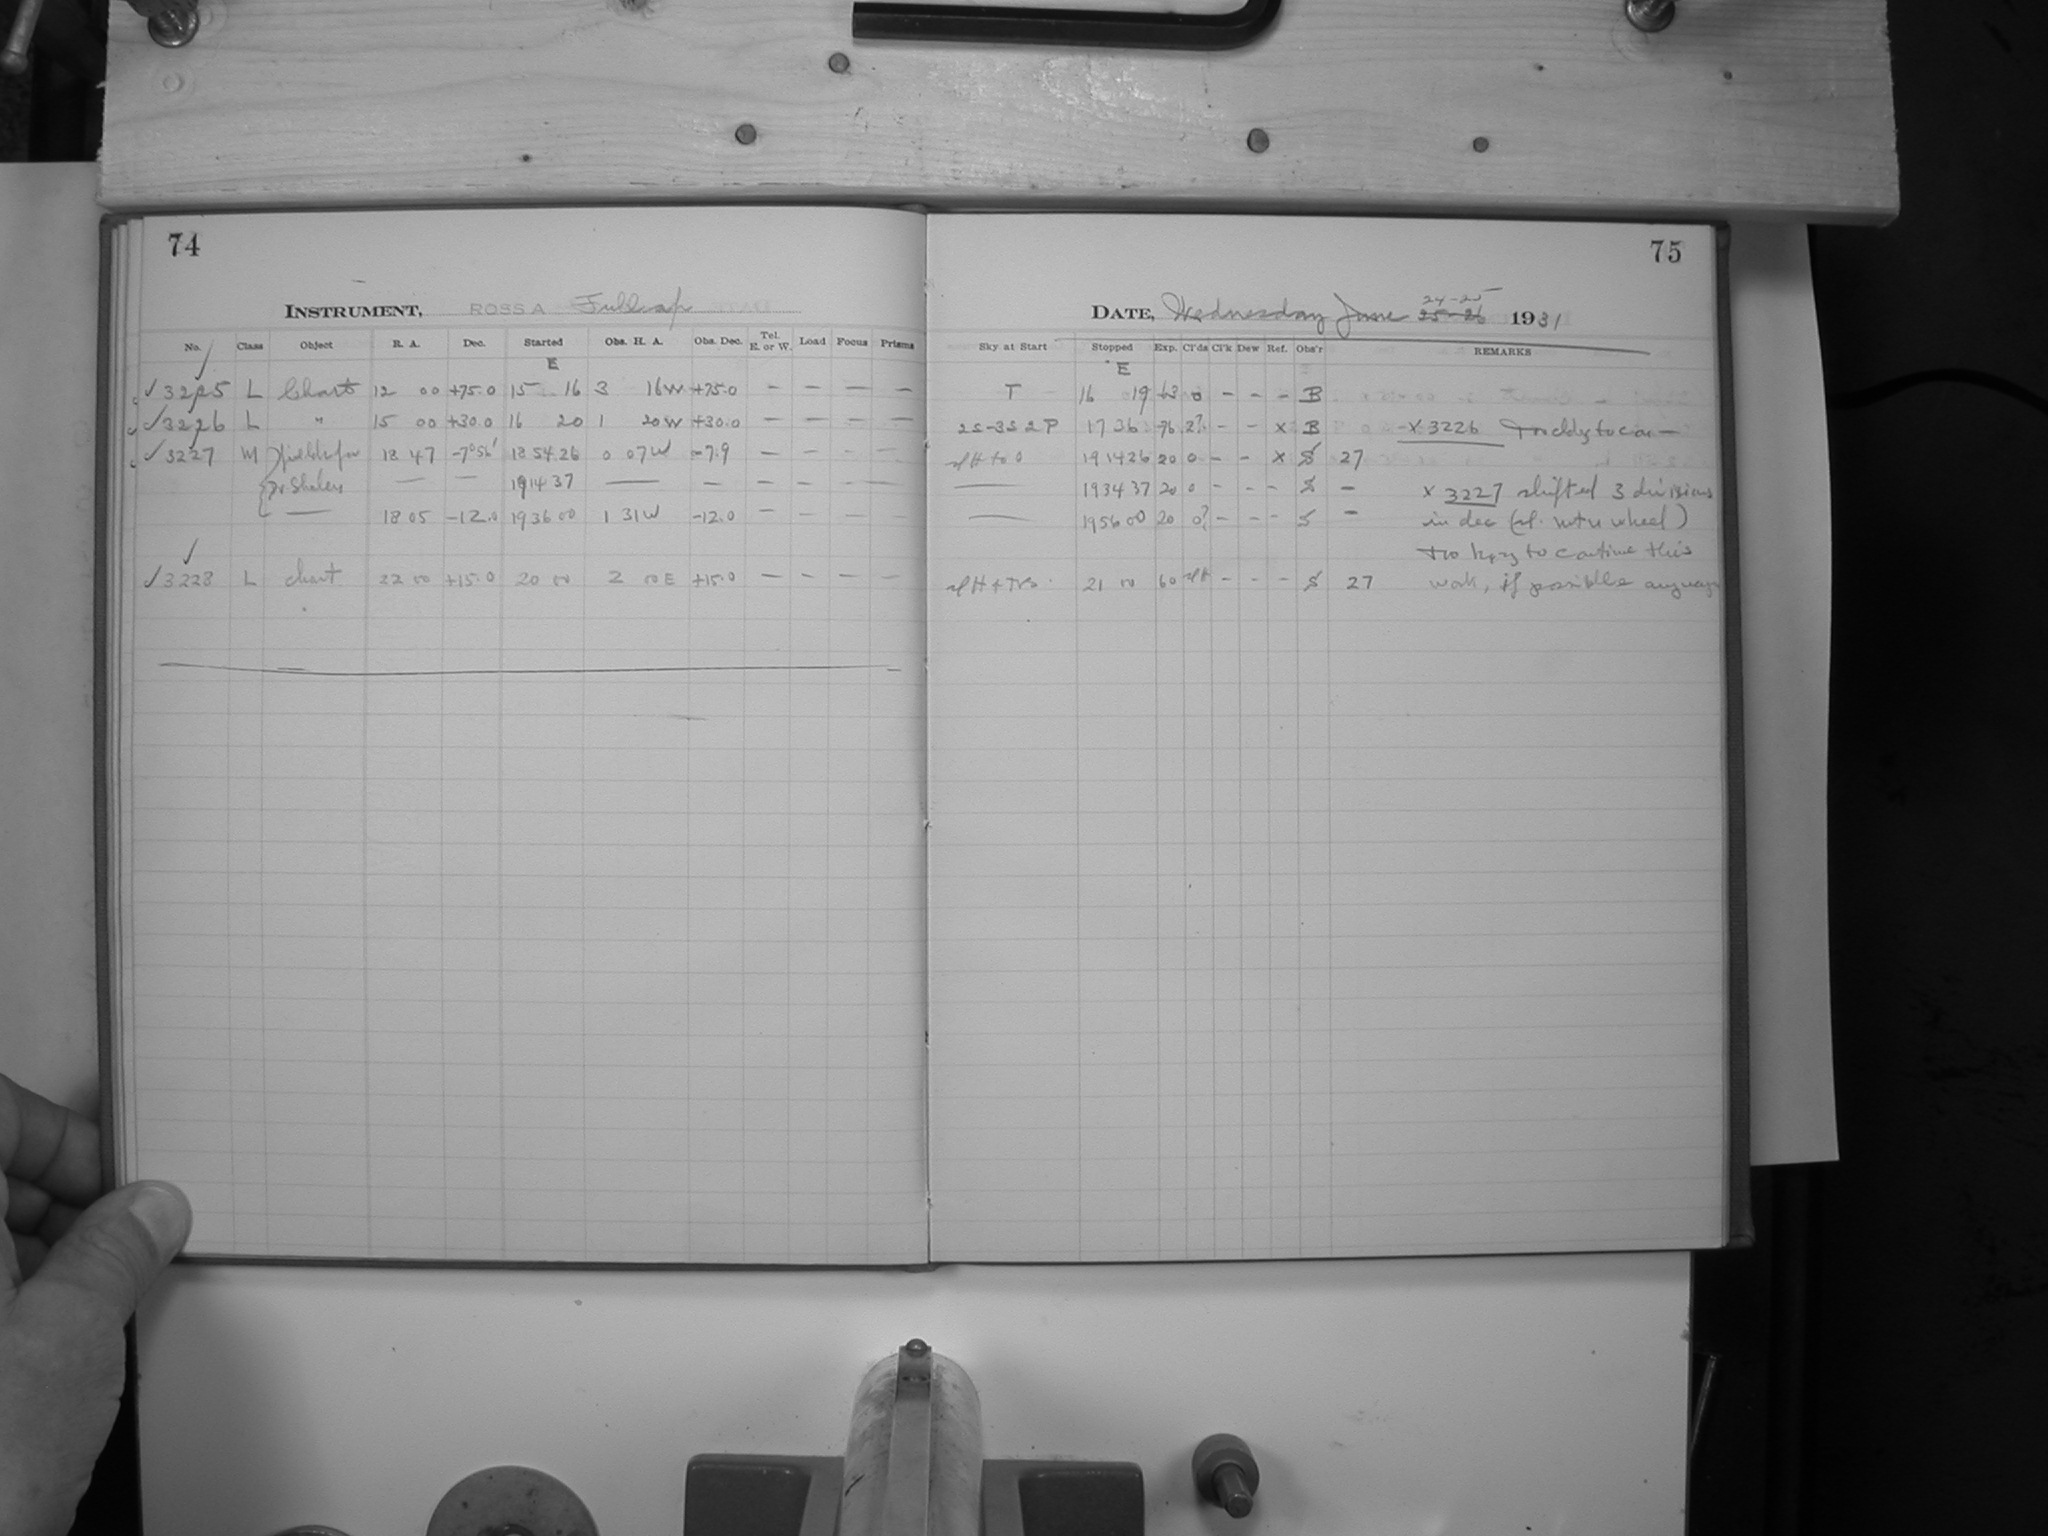 74
INSTRUMENT, ROSS A
No. Class Object R. A. Dec. Started Obs. H. A. Obs. Dec. Tel. E. or W. Load Focus Prisms
E
✓3225 L Chart 12 00 +75.0 15 16 3 16W +75.0 — — — —
✓3226 L " 15 00 +30.0 16 20 1 20W +30.0 — — — —
✓3227 M fields for 18 47 -7°56' 18 54.26 0 07W -7.9 — — — —
Dr. Shapley — — 1914 37 — — — — — —
— 18 05 -12.0 1936 00 1 31W -12.0 — — — —
✓
✓3228 L chart 22 00 +15.0 20 00 2 00E +15.0 — — — —
75
DATE, Wednesday June 24-25 25-26 1931
Sky at Start Stopped Exp. Cl'ds Cl'k Dew Ref. Obs'r REMARKS
E
T 16 19 63 0 - - - B
2S-3S 2P 17 36 76 2? - - X B X 3226
1914 26 20 0 - - X S 27
— 1934 37 20 0 - - - S - X 3227 shifted 3 divisions
— 1956 00 20 0? - - - S - in dec wheel)
to continue this
21 00 60 - - - S 27 work, if possible anyway